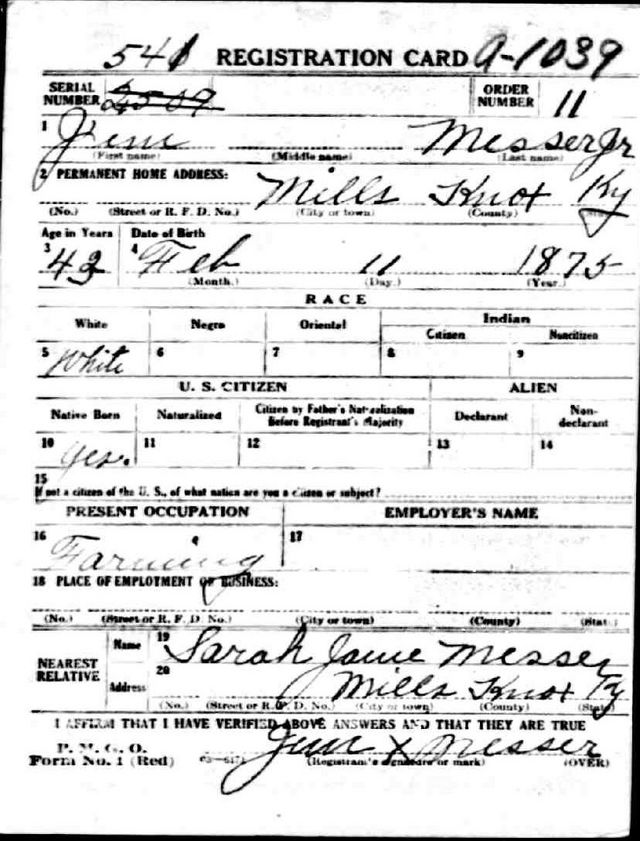 541 REGISTRATION CARD A-1039
SERIAL NUMBER 2509 ORDER NUMBER 11
1 Jim Messer Jr
(First name) (Middle name) (Last name)
2 PERMANENT HOME ADDRESS: Mills Knox Ky
(No.) (Street or R. F. D. No.) (City or town) (County) (State)
Age in Years Date of Birth
3 43 4 Feb 11 1875
(Month.) (Day.) (Year.)
RACE
White Negro Oriental Indian
Citizen Noncitizen
5 White 6 7 8 9
U. S. CITIZEN ALIEN
Native Born Naturalized Citizen by Father's Naturalization Before Registrant's Majority Declarant Non-declarant
10 yes. 11 12 13 14
15
If not a citizen of the U. S., of what nation are you a citizen or subject?
PRESENT OCCUPATION EMPLOYER'S NAME
16 Farming 17
18 PLACE OF EMPLOYMENT OR BUSINESS:
(No.) (Street or R. F. D. No.) (City or town) (County) (State)
NEAREST RELATIVE Name 19 Sarah Jane Messer
Address 20 Mills Knox Ky
(No.) (Street or R. F. D. No.) (City or town) (County) (State)
I AFFIRM THAT I HAVE VERIFIED ABOVE ANSWERS AND THAT THEY ARE TRUE
P. M. G. O.
Form No. 1 (Red) Jim X Messer
(Registrant's signature or mark) (OVER)